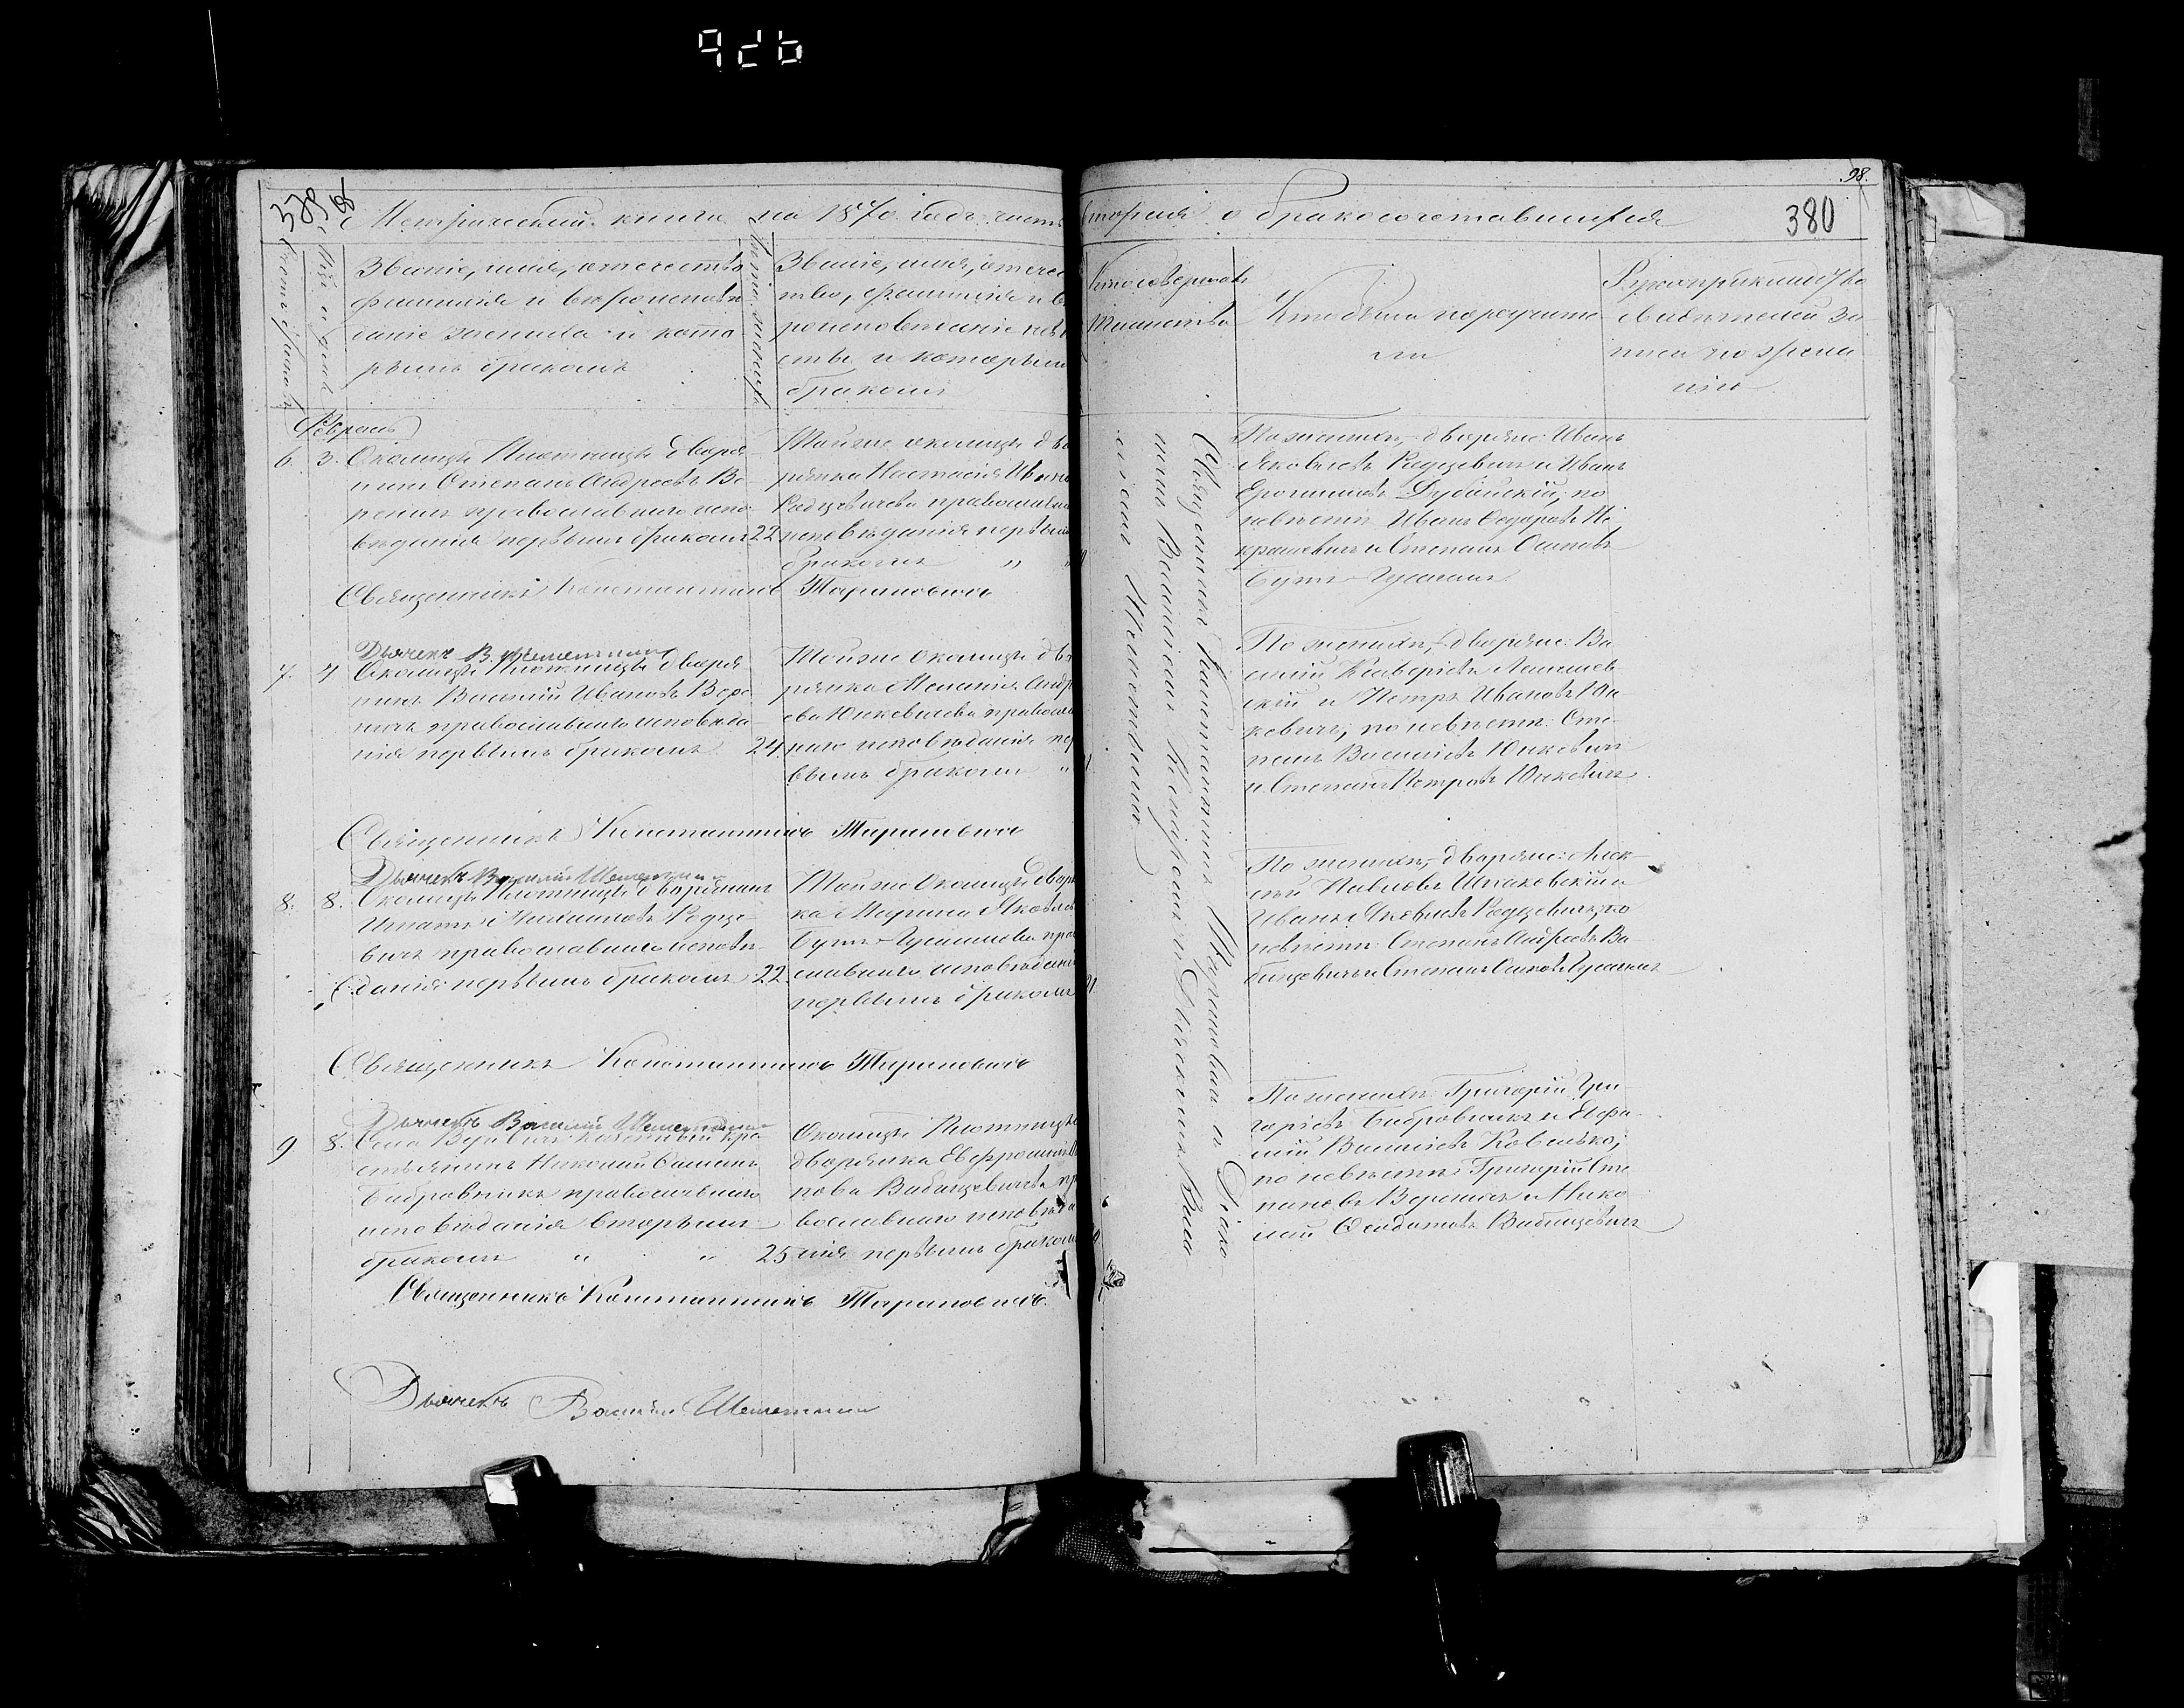 926
98.
379
380
Метрической книги на 1870 годъ часть вторая о бракосочетавшихся
Счетъ браковъ
Мѣс. и день
Званіе, имя, отечество
фамилія и вѣроисповѣ
даніе жениха и кото
рымъ бракомъ
Лѣта жениха
Званіе, имя, отечес
тво, фамилія и вѣ
роисповѣданіе невѣ
сты и которымъ
бракомъ
Кто совершалъ
таинство
Кто были поручите
ли
Рукоприкладство
свидѣтелей за
писи по жела
нію
Февраль
6. 3. Околицы Плотницы дворя
нинъ Степанъ Андреевъ Ве
ренич православнаго испо
вѣданія первымъ бракомъ 22
Тойже околицы дво
рянка Настасія Ивано
Радцевичева православна
исповѣданія первымъ
бракомъ " "
По женихѣ, дворяне: Иванъ
Яковлевъ Радцевичъ и Иванъ
Еронимовъ Дубойскій; по
невѣстѣ Иванъ Ѳедоровъ Не
крашевичъ и Степанъ Осиповъ
Бутъ-Гусаимъ
Священникъ Константинъ Тариновичъ
Дьячекъ В. Шеметилло
7. 4 Околицы Плотницы дворя
нинъ Василій Ивановъ Вере
ничъ православнаго исповѣда
нія первымъ бракомъ 24.
Тойже околицы дво
рянка Меланія Андр
ева Юнкевичева правосла
наго исповѣданія пер
вымъ бракомъ "
По женихѣ, дворяне: Ва
силій Ксаверіевъ
скій и Петръ Ивановъ Юн
кевичъ; по невѣстѣ: Сте
панъ Василіевъ Юнкевичъ
и Степанъ Петровъ Юнкевичъ.
Священникъ Константинъ Тариновичъ
Дьячекъ Василій Шеметилло
8. 8. Околицы Плотницы дворянинъ
Игнатъ Михаиловъ Радце
вичъ православнаго исповѣ
данія первымъ бракомъ 22.
Тойже Околицы дворян
ка Марина Яковлев
Бутъ-Гусаимова право
славнаго исповѣдані
первымъ бракомъ 21.
По женихѣ, дворяне: Алек
сѣй Павловъ Шпаковскій и
Иванъ Яковлевъ Радцевичъ; по
невѣстѣ: Степанъ Андреевъ Ва
бищевичъ и Степанъ Осиповъ Гусаимъ
Священникъ Константинъ Тариновичъ
Дьячекъ Василій Шеметилло
9 8. Села казенный кре
стьянинъ Николай
Бобровникъ православнаго
исповѣданія вторымъ
бракомъ " " 25
Околицы Плотницы
дворянка Евфросинія
пова Вабищевичева пра
вославнаго исповѣда
нія первымъ бракомъ
По женихѣ Григорій Гри
горіевъ Бобровникъ и Евфи
мій Василіевъ Ковалько;
по невѣстѣ Григорій Сте
пановъ Вереничъ и Нико
лай Вабищевичъ
Священникъ Константинъ Тариновичъ.
Дьячекъ Василій Шеметилло
Священникъ Константинъ Тариновичъ и Дьяко
номъ и Дьячкомъ Васи
ліемъ Шеметилломъ